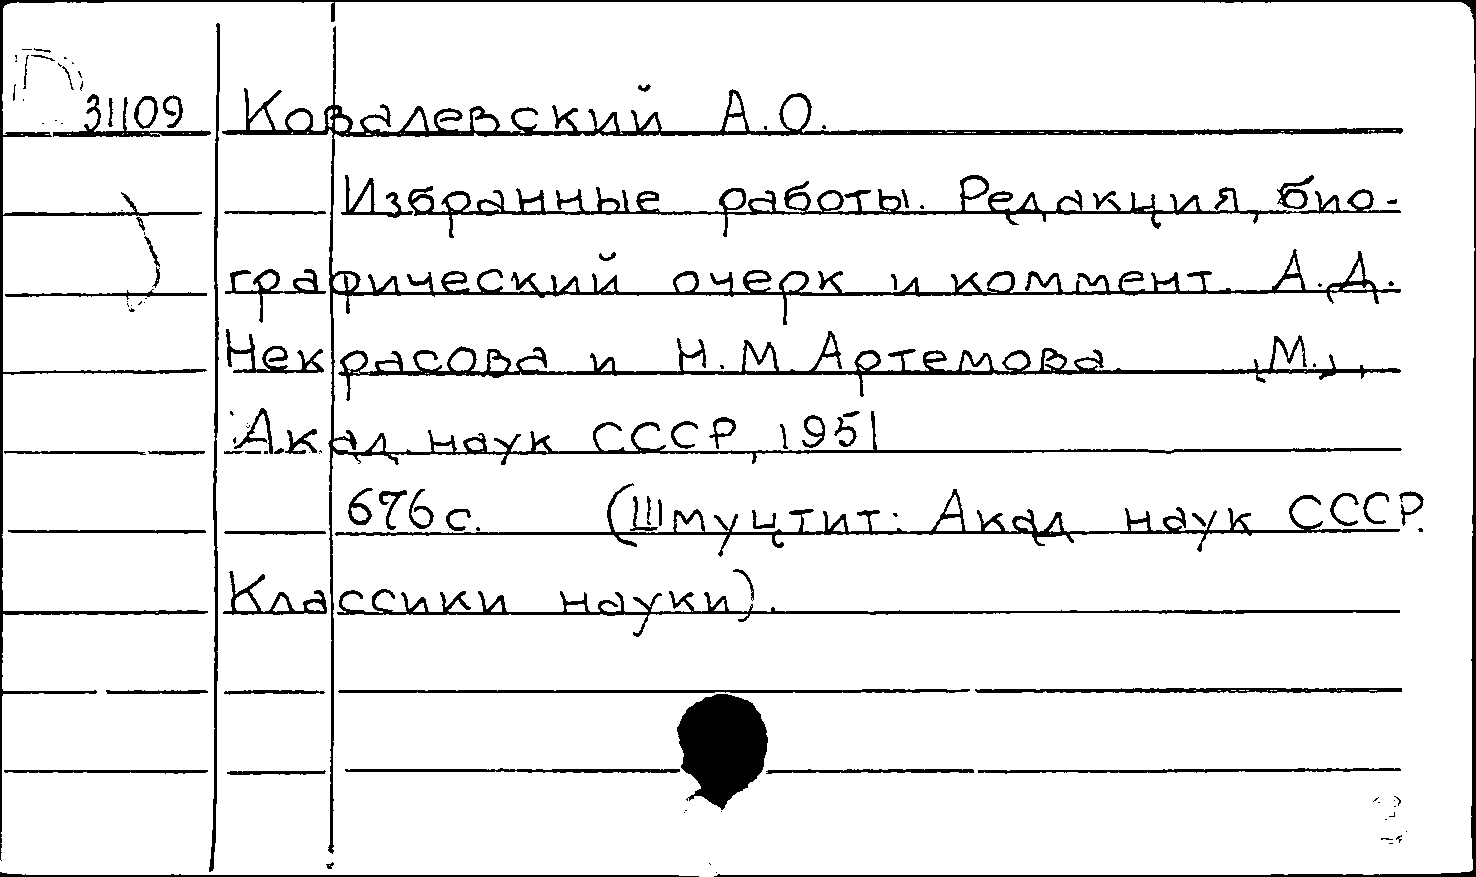 П 31109 Ковалевский А.О.
Избранные работы. Редакция, био-
графический очерк и коммент. А.Д.
Некрасова и Н.М. Артемова. [М.],
Акад. наук СССР, 1951
676 с. (Шмуцтит: Акад наук СССР.
Классики науки).